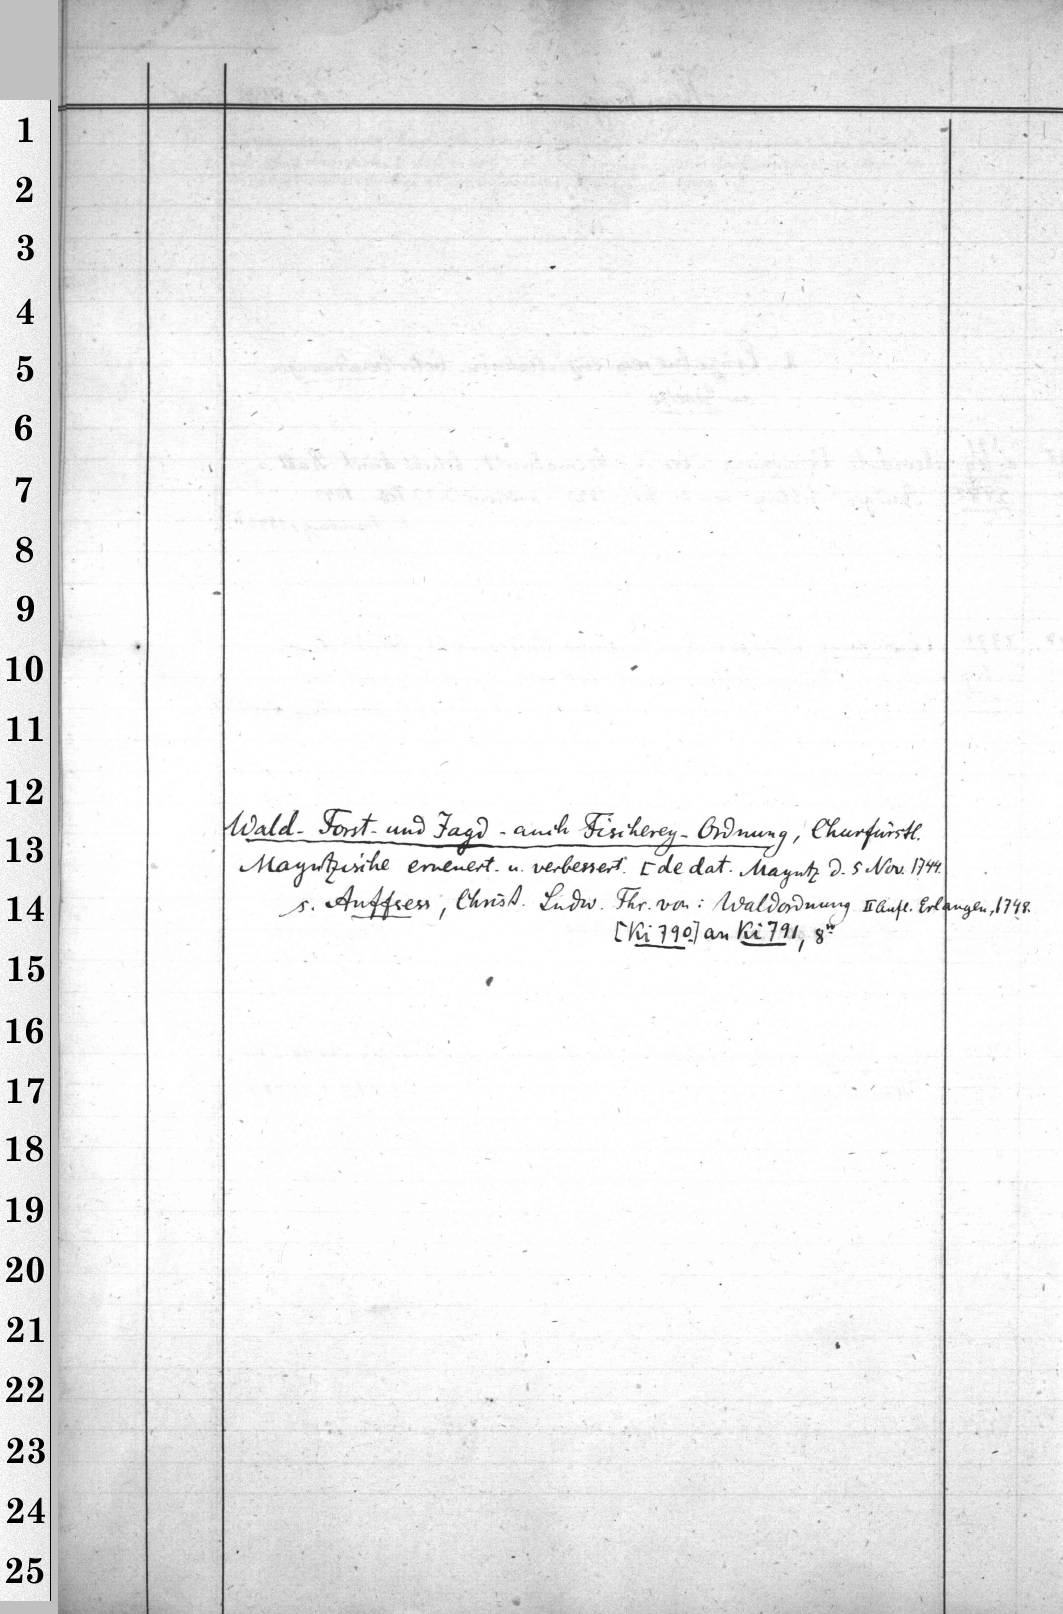 1
2
3
4
5
6
7
8
9
10
11
12
Wald- Forst- und Jagd- auch Fischerey-Ordnung, Churfürstl.
13
Mayntzische erneuert. u. verbessert. [de dat. Mayntz d. 5 Nov. 1744.
14
s. Auffsess, Christ. Ludw. Fhr. von: Waldordnung II Aufl. Erlangen, 1748.
[Ki 790] an Ki 791, 8°
15
16
17
18
19
20
21
22
23
24
25